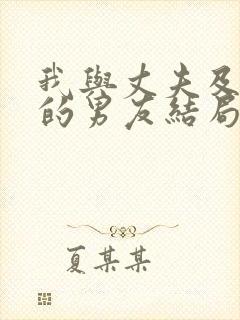 我與丈夫及
的男友結局
夏某某